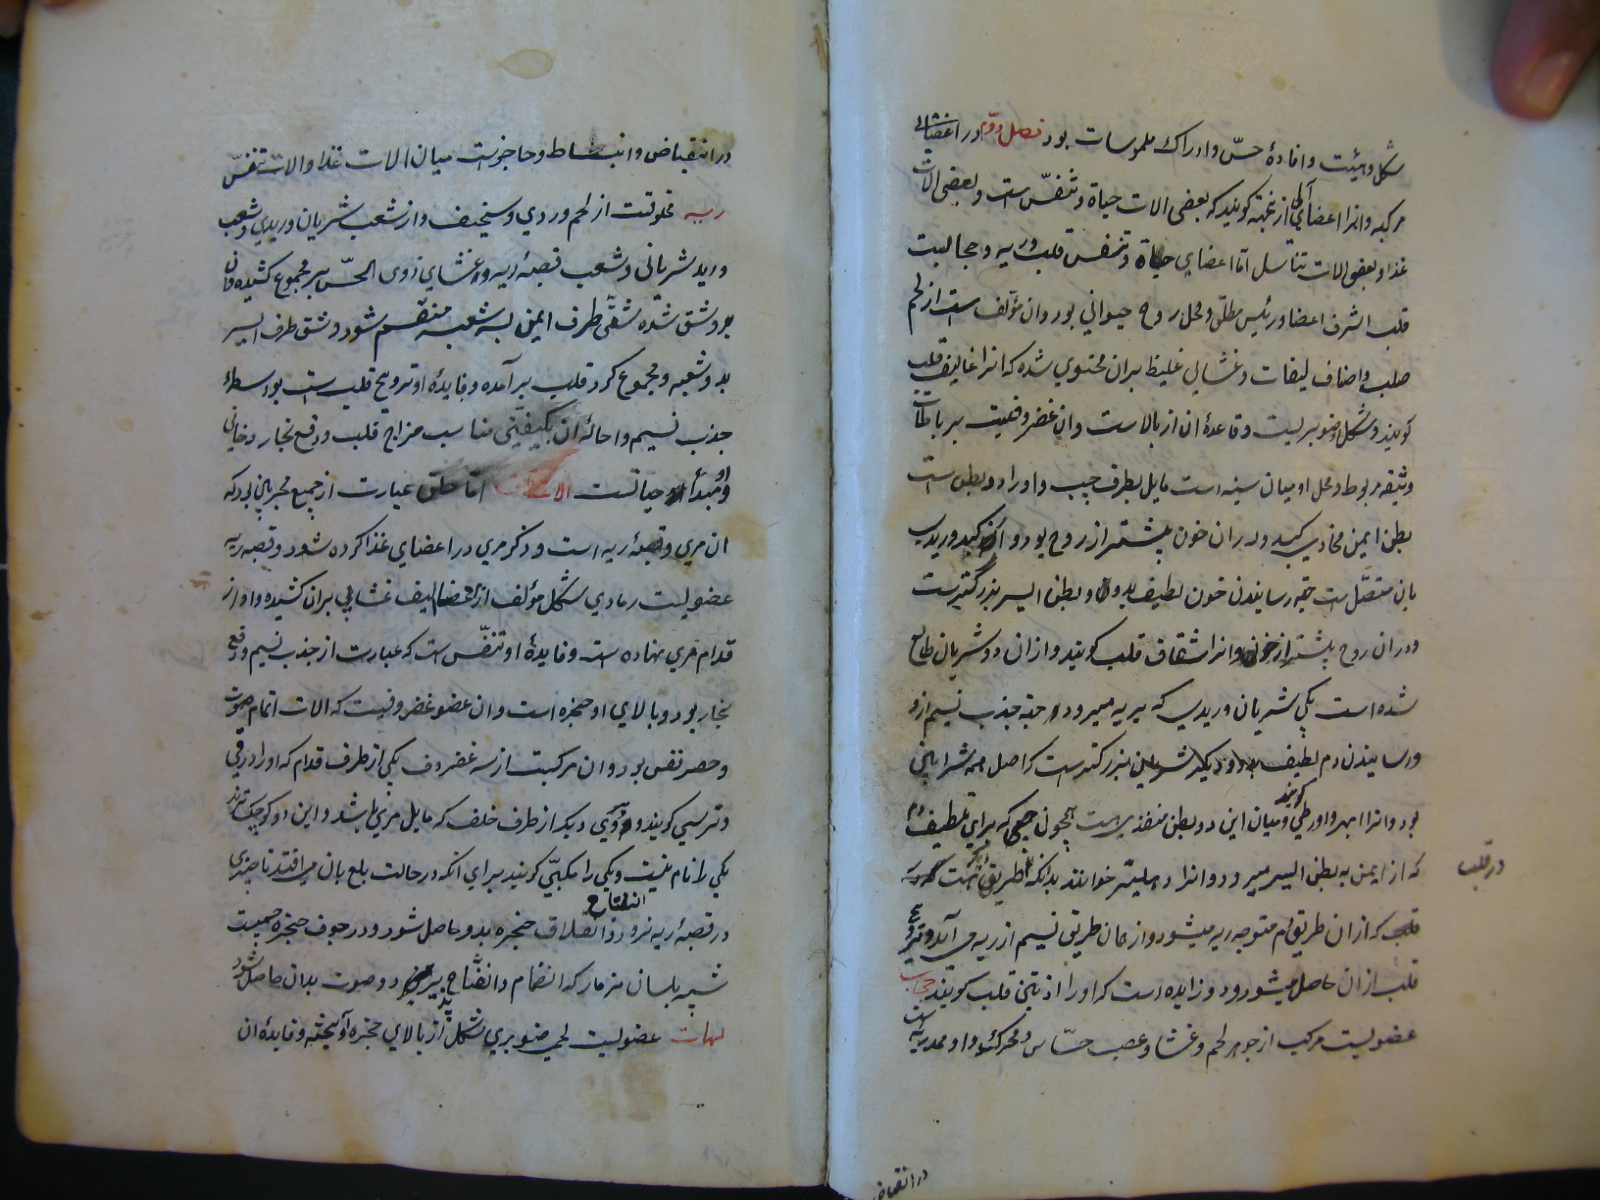 شکل و هیئت و افادهٔ حسّ و ادراک ملموسات بود فصل دوّم در اعضای
مرکبه و انرا اعضا آلی از بجهته کویند که بعضی الات حیاة و تنفّس است و بعضی الات
غذا و بعضی الات تناسل امّا اعضای حیاة و تنفس قلب و ریه و حجابست
قلب اشرف اعضا و رئیس مطلق و محل روح حیوانی بود و ان مؤلف است از لحم
صلب و اصناف لیفات و غشایی غلیظ بران محتوی شده که انرا غالیف قلب
کویند و شکل او صنوبریست و قاعدهٔ ان از بالاست و ان غضروفیست برباطات
وثیقه مربوط و محل او میان سینه است مایل بطرف چپ و او را دو بطن است
بطن ایمن محاذی کبد و در ان خون بیشتر از روح بود و از کبد وریدی
بان متصّل است جهة رسانیدن خون لطیف بدو و بطن ایسر بزرکتر است
و در ان روح بیشتر از خون و انرا شقاف قلب کویند و ازان دو شریان طالع
شده است یکی شریان وریدی که بریه میرود جهة جذب نسیم ازو
و رسانیدن دم لطیف بدو و دیکر شریانی بزرکتر است که اصل همه شرایانی
بود و انرا ابهر و اورطی کویند و میان این دو بطن منفذیست همچون که برای تلطیف دم
که از ایمن به بطن ایسر میرود و انرا دهلیز خوانند بدانکه طریق است
در قلب
قلب که ازان طریق دم متوجه ریه میشود و از همان طریق نسیم از ریه می آید و ترویح
قلب ازان حاصل میشود و دو زایده است که او را اذنی قلب کویند حجاب
عضویست مرکب از جوهر لحم و غشا و عصب حسّاس و محرکه و او ممد ریه است
در انقباض
در انقباض و انبساط و حاجز است میان الات غذا و الات تنفّس
ریه مخلوقست از لحم وردی و سخیف و از شعب شریان وریدی و شعب
ورید شریانی و شعب قصبهٔ ریه و غشای ذوی الحسّ بر مجموع کشیده و ان
بدو شق شده شقّی طرف ایمن بسه شعبه منقسم شود و شق طرف ایسر
بدو شعبه و مجموع کرد قلب برآمده و فایدهٔ او ترویح قلب است بواسطهٔ
جذب نسیم و احالهٔ ان بکیفیتی مناسب مزاج قلب و دفع بخار دخانی
و او مبدأ حیاتست امّا حلق عبارت از جمیع مجریای بود که
ان مری و قصبهٔ ریه است و ذکر مری در اعضای غذا کرده شود و قصبه ریه
عضویست رمادی شکل مؤلف از غضاریف غشایی بران کشیده و او از
قدام مری نهاده است و فایدهٔ او تنفّس است که عبارت از جذب نسیم و دفع
بخار بود و بالای او حنجره است و ان عضو غضروفیست که الات اتمام صوت
و حصر نفس بود و ان مرکبست از سه غضروف یکی از طرف قدام که او را درقی
و ترسی کویند و دو دیکر از طرف خلف که مایل مری باشد و این دو کوچکترند
یکی را نام نیست و یکی را مکبّی کویند برای انکه در حالت بلع بان می افتد تا چیزی
در قصبهٔ ریه نرود و انفتاح و انغلاق حنجره بدو حاصل شود و در جوف حنجره جسمیست
شبیه بلسان مزمار که انضمام و انفتاح پذیرد و صوت بدان حاصل شود
لهات عضویست لحمی صنوبری شکل از بالای حنجره آویخته و فایدهٔ ان